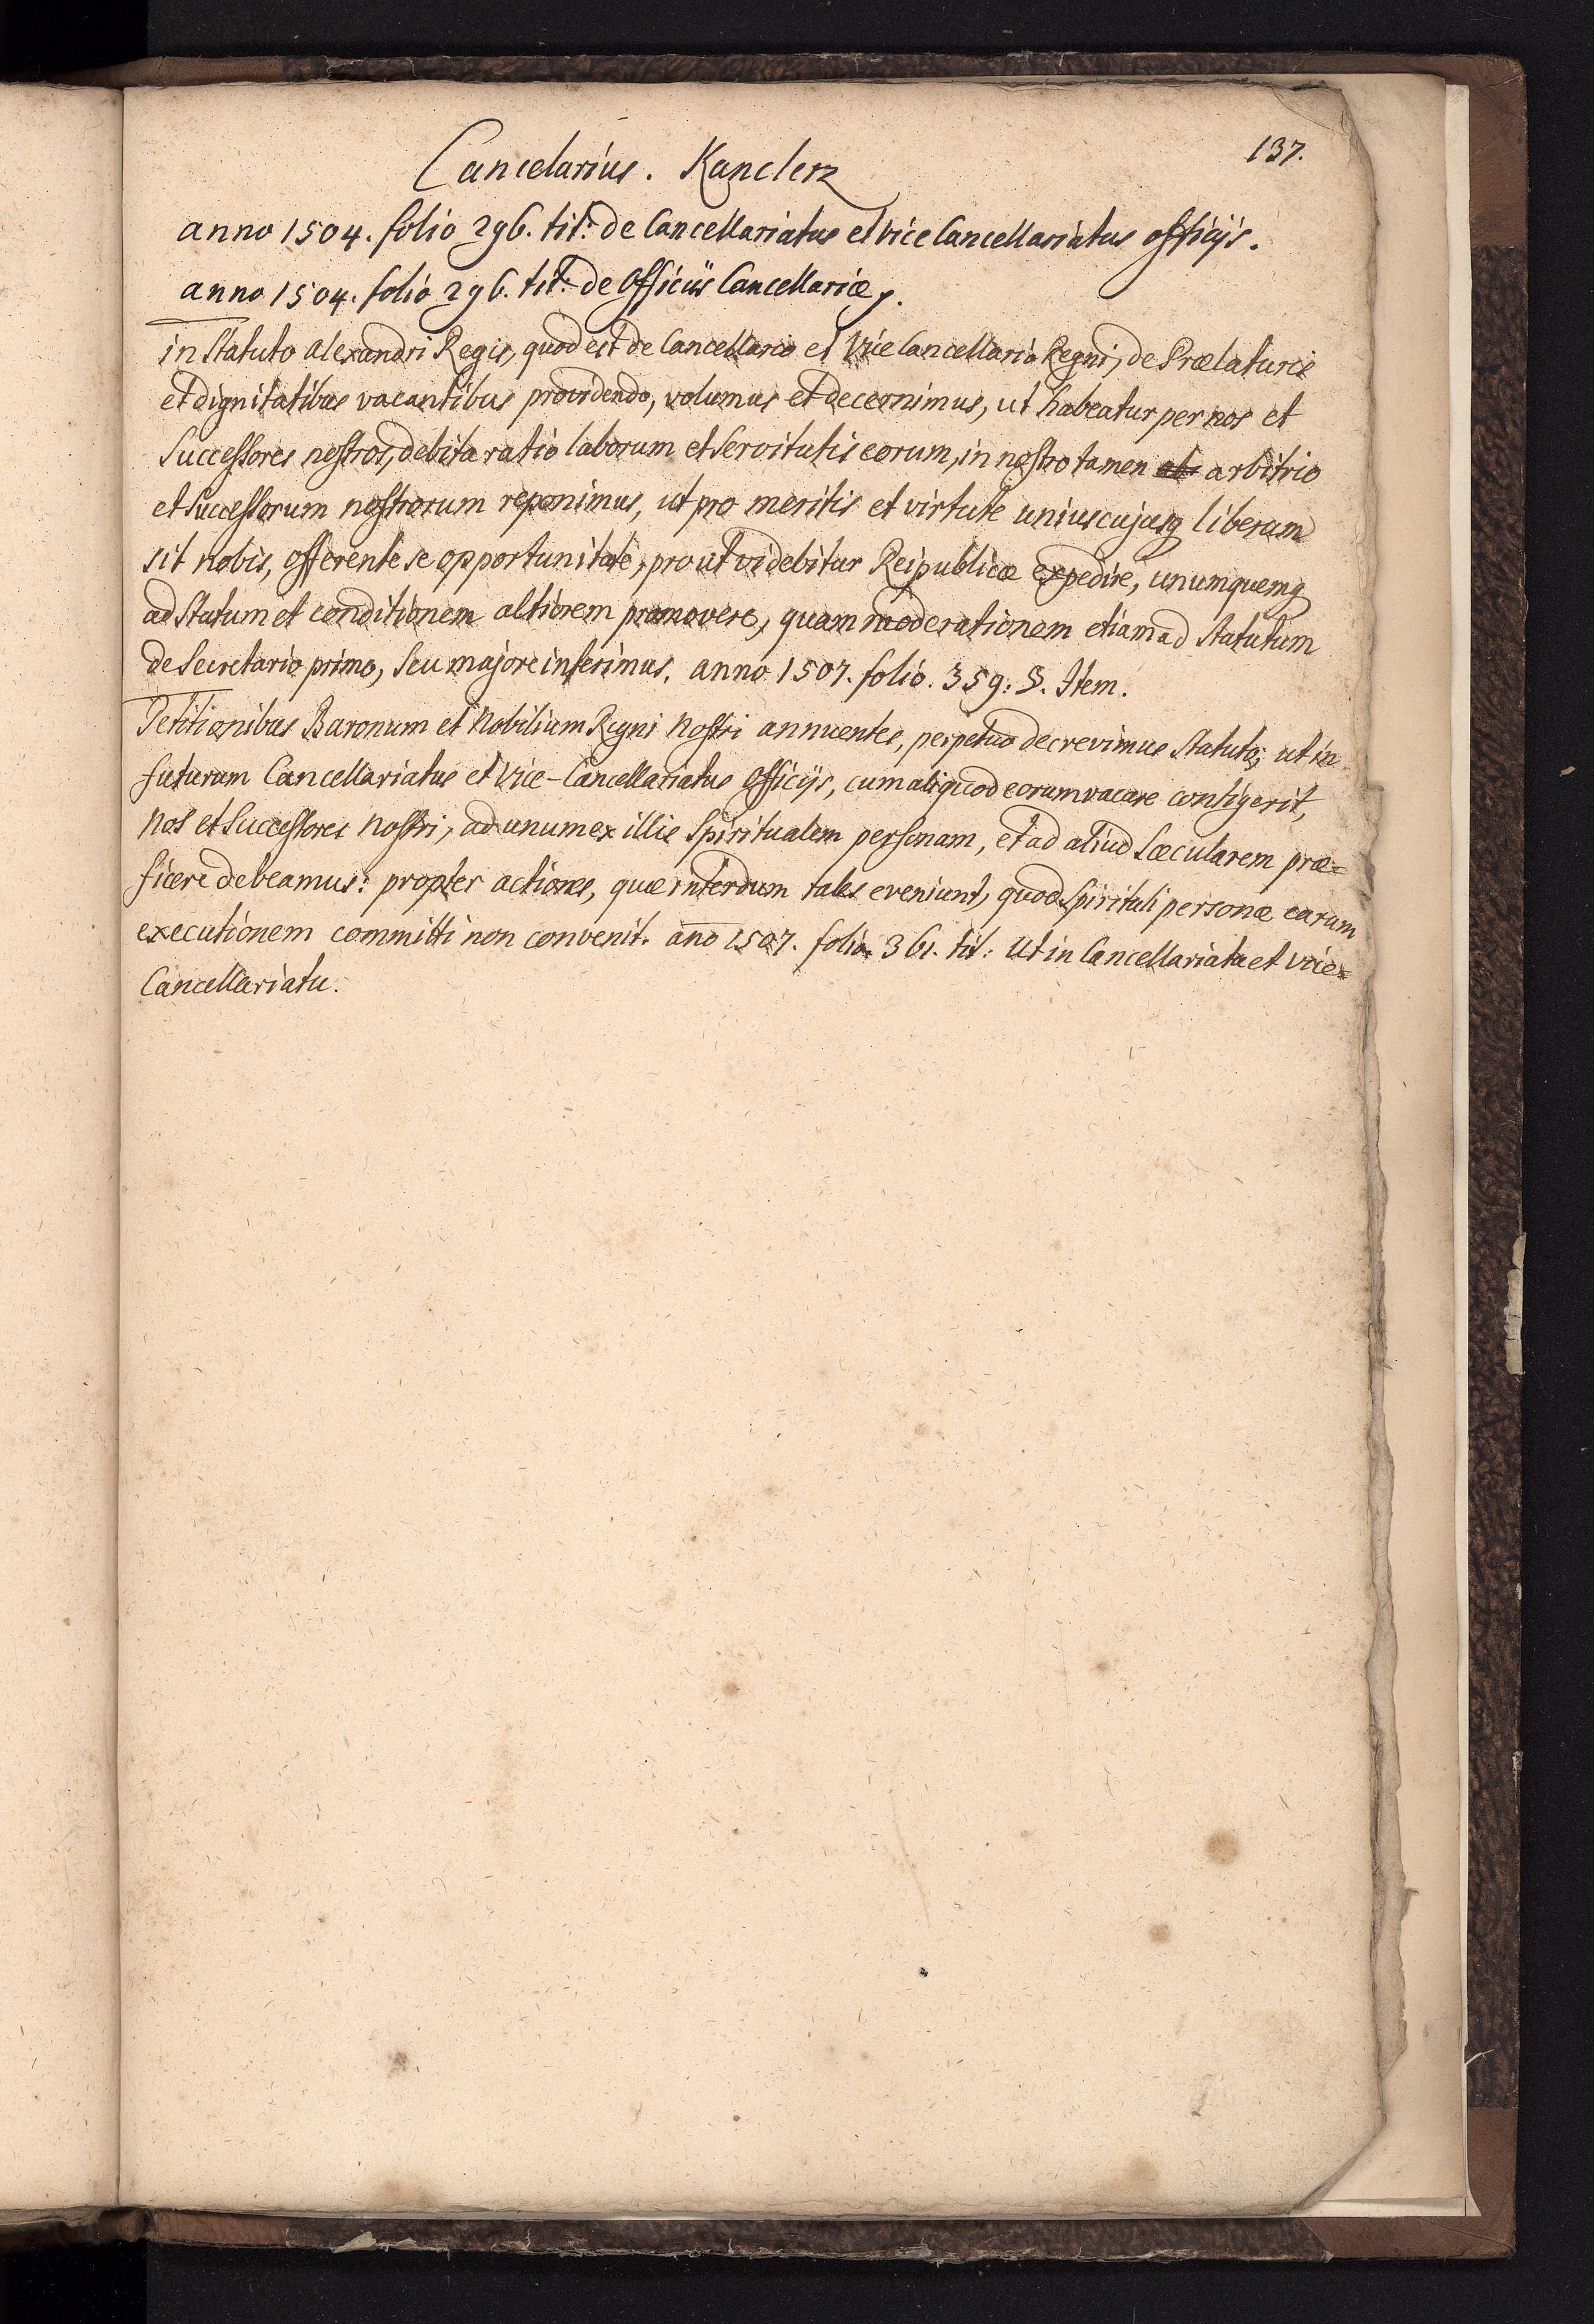 137.
Cancelarius. Kanclerz
anno 1504. folio 296. tit: de Cancellariatus et vice Cancellariatus officijs.
anno 1504. folio 296. tit: de Officiis Cancellariæ.
in Statuto alexandri Regis, quod est de Cancellario et Vice Cancellario Regni, de Prælaturis
et dignitatibus vacantibus providendo, volumus et decernimus, ut habeatur per nos et
Successores nostros, debita ratio laborum et Servitutis eorum, in nostro tamen arbitrio
et Successorum nostrorum reponimus, ut pro meritis et virtute uniuscujusq liberum
sit nobis, offerente se opportunitate, pro ut videbitur Reipublicæ expedire, unumquemq
ad Statum et conditionem altiorem promovere, quam moderationem etiam ad Statutum
de Secretario primo, Seu majore inserimus. anno 1507. folio. 359: §. Item.
Petitionibus Baronum et Nobilium Regni Nostri annuentes, perpetuo decrevimus Statuto, ut in
futurum Cancellariatus et Vice-Cancellariatus officijs, cum aliquod eorum vacare contigerit,
Nos et Successores Nostri, ad unum ex illis Spiritualem personam, et ad aliud Sæcularem præ=
ficere debeamus: propter actiones, quæ interdum tales eveniunt, quod Spirituli personæ earum
executionem committi non convenit. año 1507. folio. 361. tit: Ut in Cancellariatu et vice=
Cancellariatu.